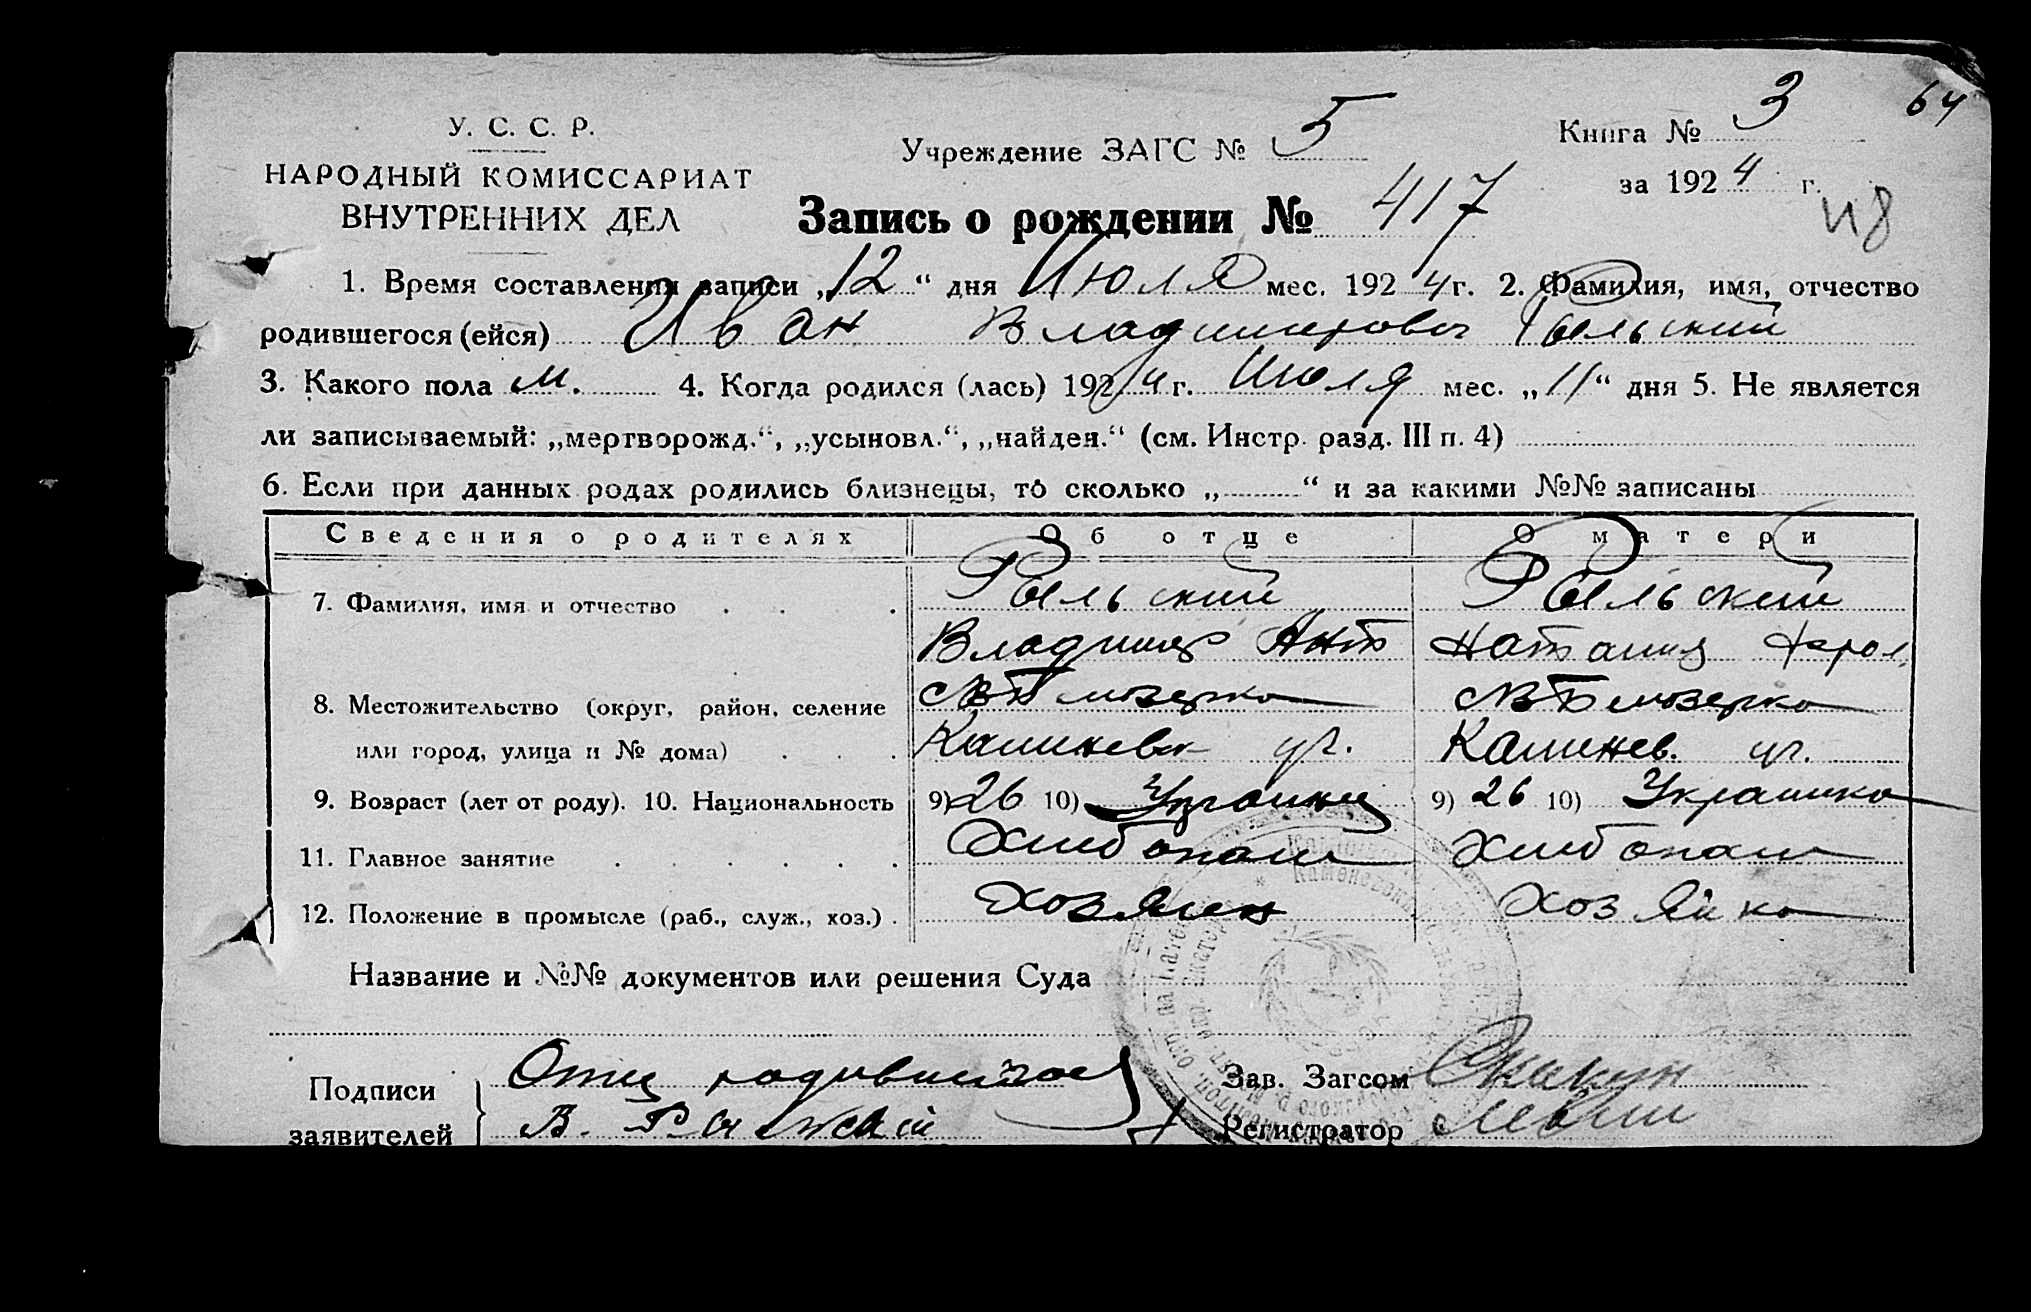 64
У. С. С. Р.
Учреждение ЗАГС № 5
Книга № 3
НАРОДНЫЙ КОМИССАРИАТ
за 1924 г.
ВНУТРЕННИХ ДЕЛ
Запись о рождении № 417
1. Время составления записи „12“ дня Июля мес. 1924 г. 2. Фамилия, имя, отчество
родившегося (ейся) Иван Владимирович Рыльский
3. Какого пола м. 4. Когда родился (лась) 1924 г. Июля мес. „11“ дня 5. Не является
ли записываемый: „мертворожд.“, „усыновл.“, „найден.“ (см. Инстр. разд. III п. 4)
6. Если при данных родах родились близнецы, то сколько „ “ и за какими №№ записаны
Сведения о родителях Об отце О матери
7. Фамилия, имя и отчество Рыльский Рыльский
Владимир Ант Наталия
8. Местожительство (округ, район, селение
или город, улица и № дома)
9. Возраст (лет от роду). 10. Национальность 9) 26 10) 9) 26 10) Украинка
11. Главное занятие Хлебопаш Хлебопаш
12. Положение в промысле (раб., служ., хоз.) Хозяин Хозяйка
Название и №№ документов или решения Суда
Подписи Отец родившегося Зав. Загсом
заявителей В. Рыльский Регистратор